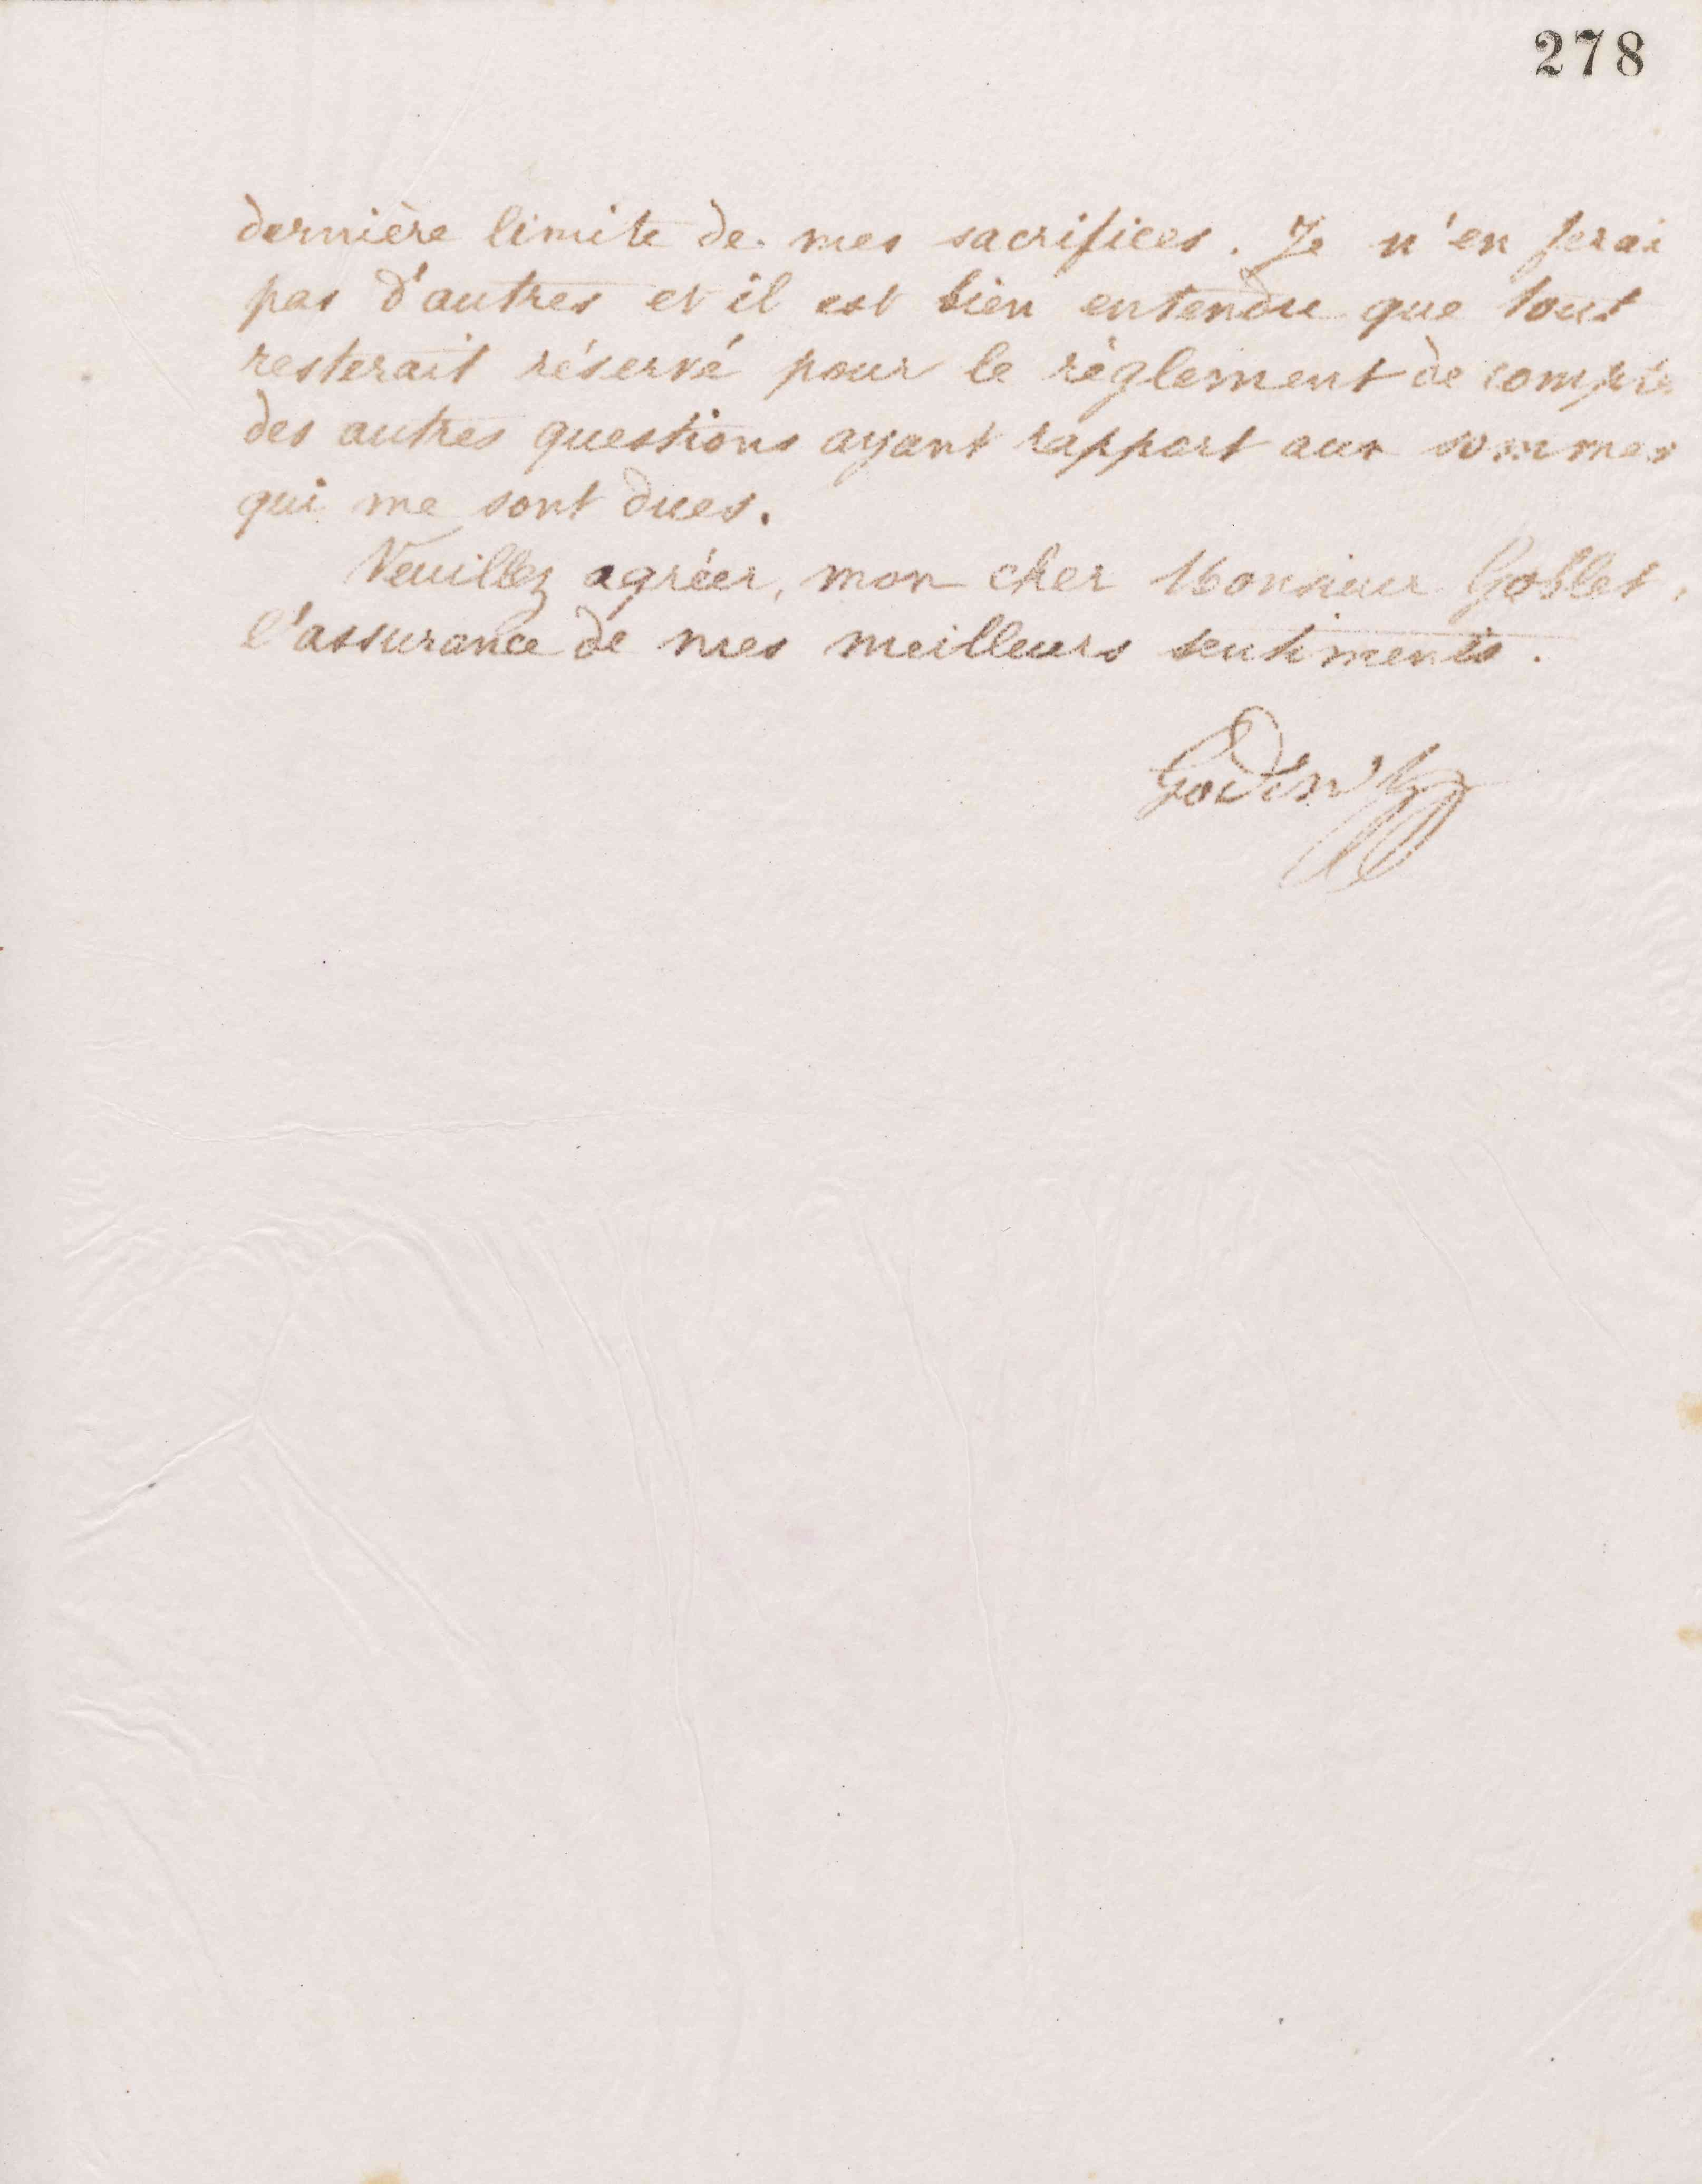 278
dernière limite de mes sacrifices. Je n'en ferai
pas d'autres et il est bien entendu que tout
resterait réservé pour le règlement de compte
des autres questions ayant rapport aux sommes
qui me sont dues.
Veuillez agréer, mon cher Monsieur Goblet,
l'assurance de mes meilleurs sentiments.
Godin